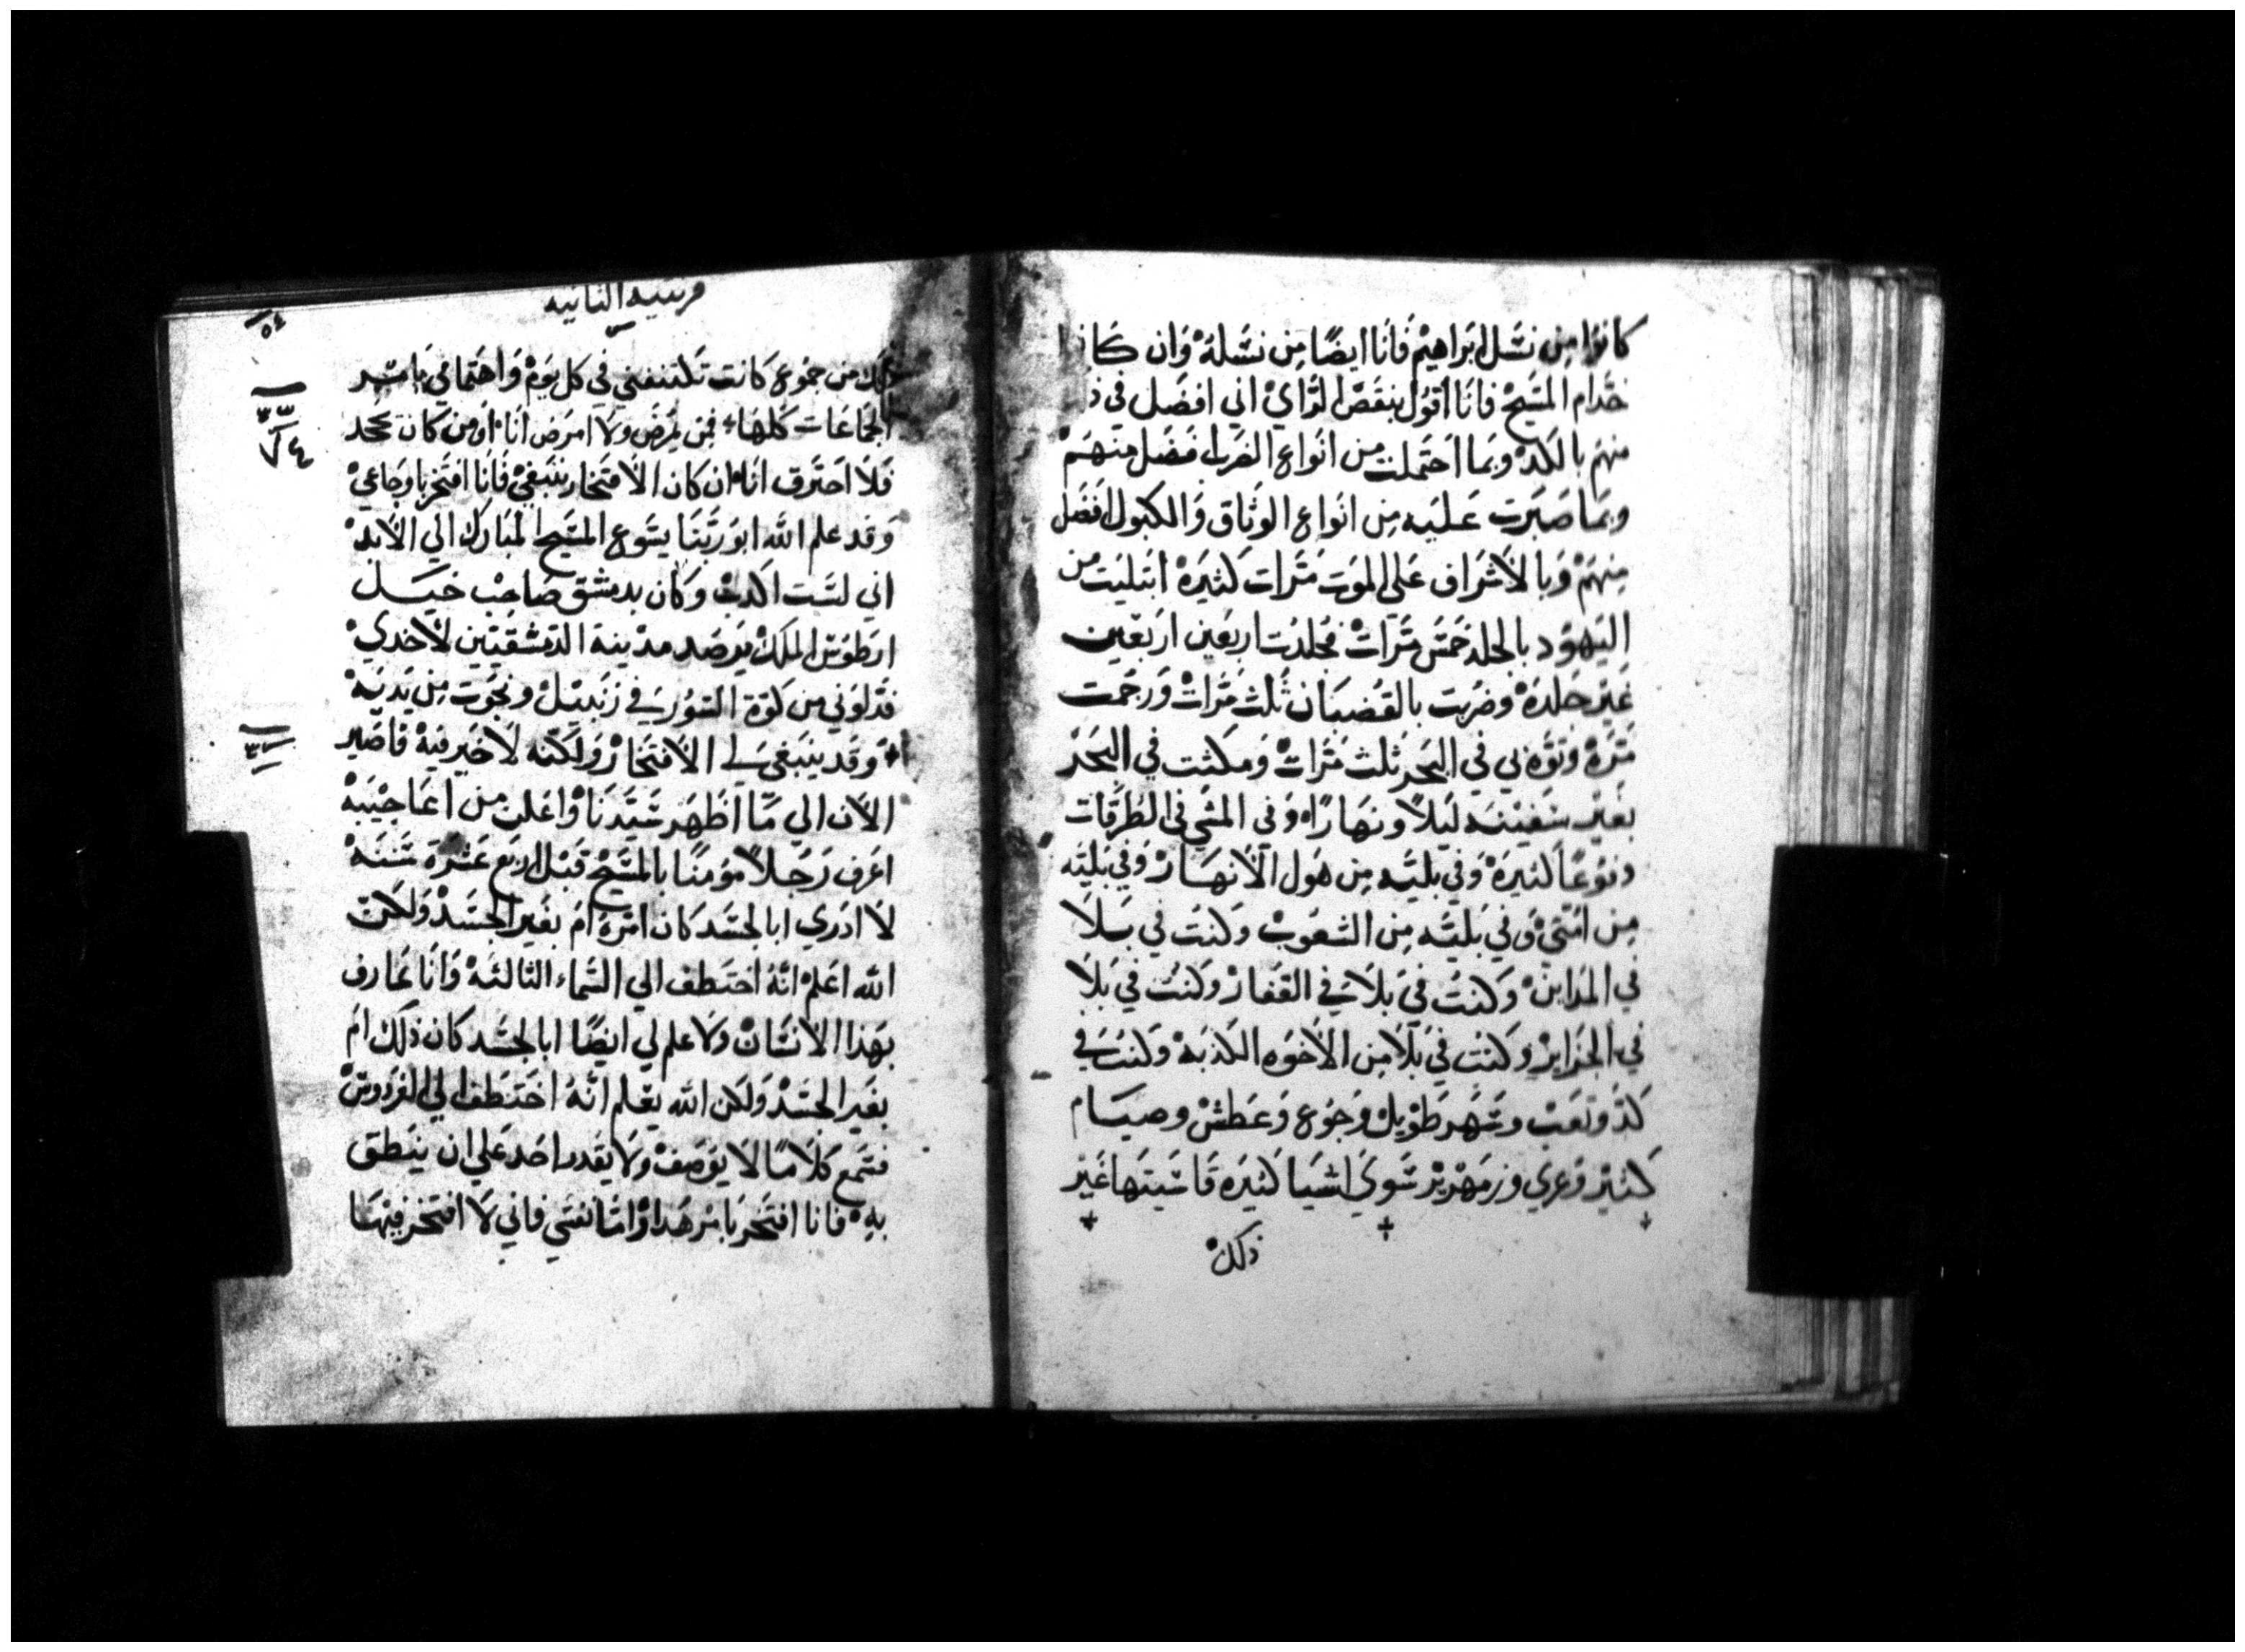 كانوا من نسل ابراهيم فانا ايضًا من نسله وان كانوا
خدام المسيح فانا اقول بنقص الراي اني افضل في
منهم بالكد وبما احتملت من انواع الضرب افضل منهم
وبما صبرت عليه من انواع الوثاق والكبول افضل
منهم وبالاشراف علي الموت مرات كثيرة ابتليت من
اليهود بالجلد خمس مرات فجلدت اربعين اربعين
غير جلدة وضربت بالقضبان ثلث مرات ورجمت
مرة ونوّه بي في البحر ثلث مرات ومكثت في البحر
بغير سفينه ليلًا ونهارًا وفي المشي في الطرقات
دفوعًا كثيرة وفي بليّه من هول الانهار وفي بليّه
من امتي وفي بليّه من الشعوب وكنت في بلا
في المداين وكنت في بلا في القفار وكنت في بلا
في الجزاير وكنت في بلا من الاخوه الكذبه وكنت في
كدّ وتعب وسهر طويل وجوع وعطش وصيام
كثير وعري وزمهرير سوي اشيا كثيره قاسيتها غير
ذلك
الثانيه
ذلك من جموع كانت تكتنفني في كل يوم واهتمامي بامر
الجماعات كلها فمن يمرض ولا امرض انا او من كان يجحد
فلا احترق انا ان كان الافتخار ينبغي فانا افتخر باوجاعي
وقد علم الله ابو ربنا يسوع المسيح المبارك الي الابد
اني لست اكذب وكان بدمشق صاحب خيل
ارطوس الملك يرصد مدينة الدمشقيين لاخذي
فدلوني من كوّة السور في زنبيل ونجوت من يديه
وقد ينبغي لي الافتخار ولكنه لا خير فيه فاصير
الان الي ما اظهر سيدنا واعلن من اعاجيبه
اعرف رجلًا مؤمنًا بالمسيح قبل اربع عشرة سنه
لا ادري ابالجسد كان امره ام بغير الجسد ولكن
الله اعلم انه اختطف الي السماء الثالثه وانا عارف
بهذا الانسان ولا علم لي ايضًا ابالجسد كان ذلك ام
بغير الجسد ولكن الله يعلم انه اختطف الي الفردوس
فسمع كلامًا لا يوصف ولا يقدر احد علي ان ينطق
به فانا افتخر بامر هذا واما نفسي فاني لا افتخر فيها